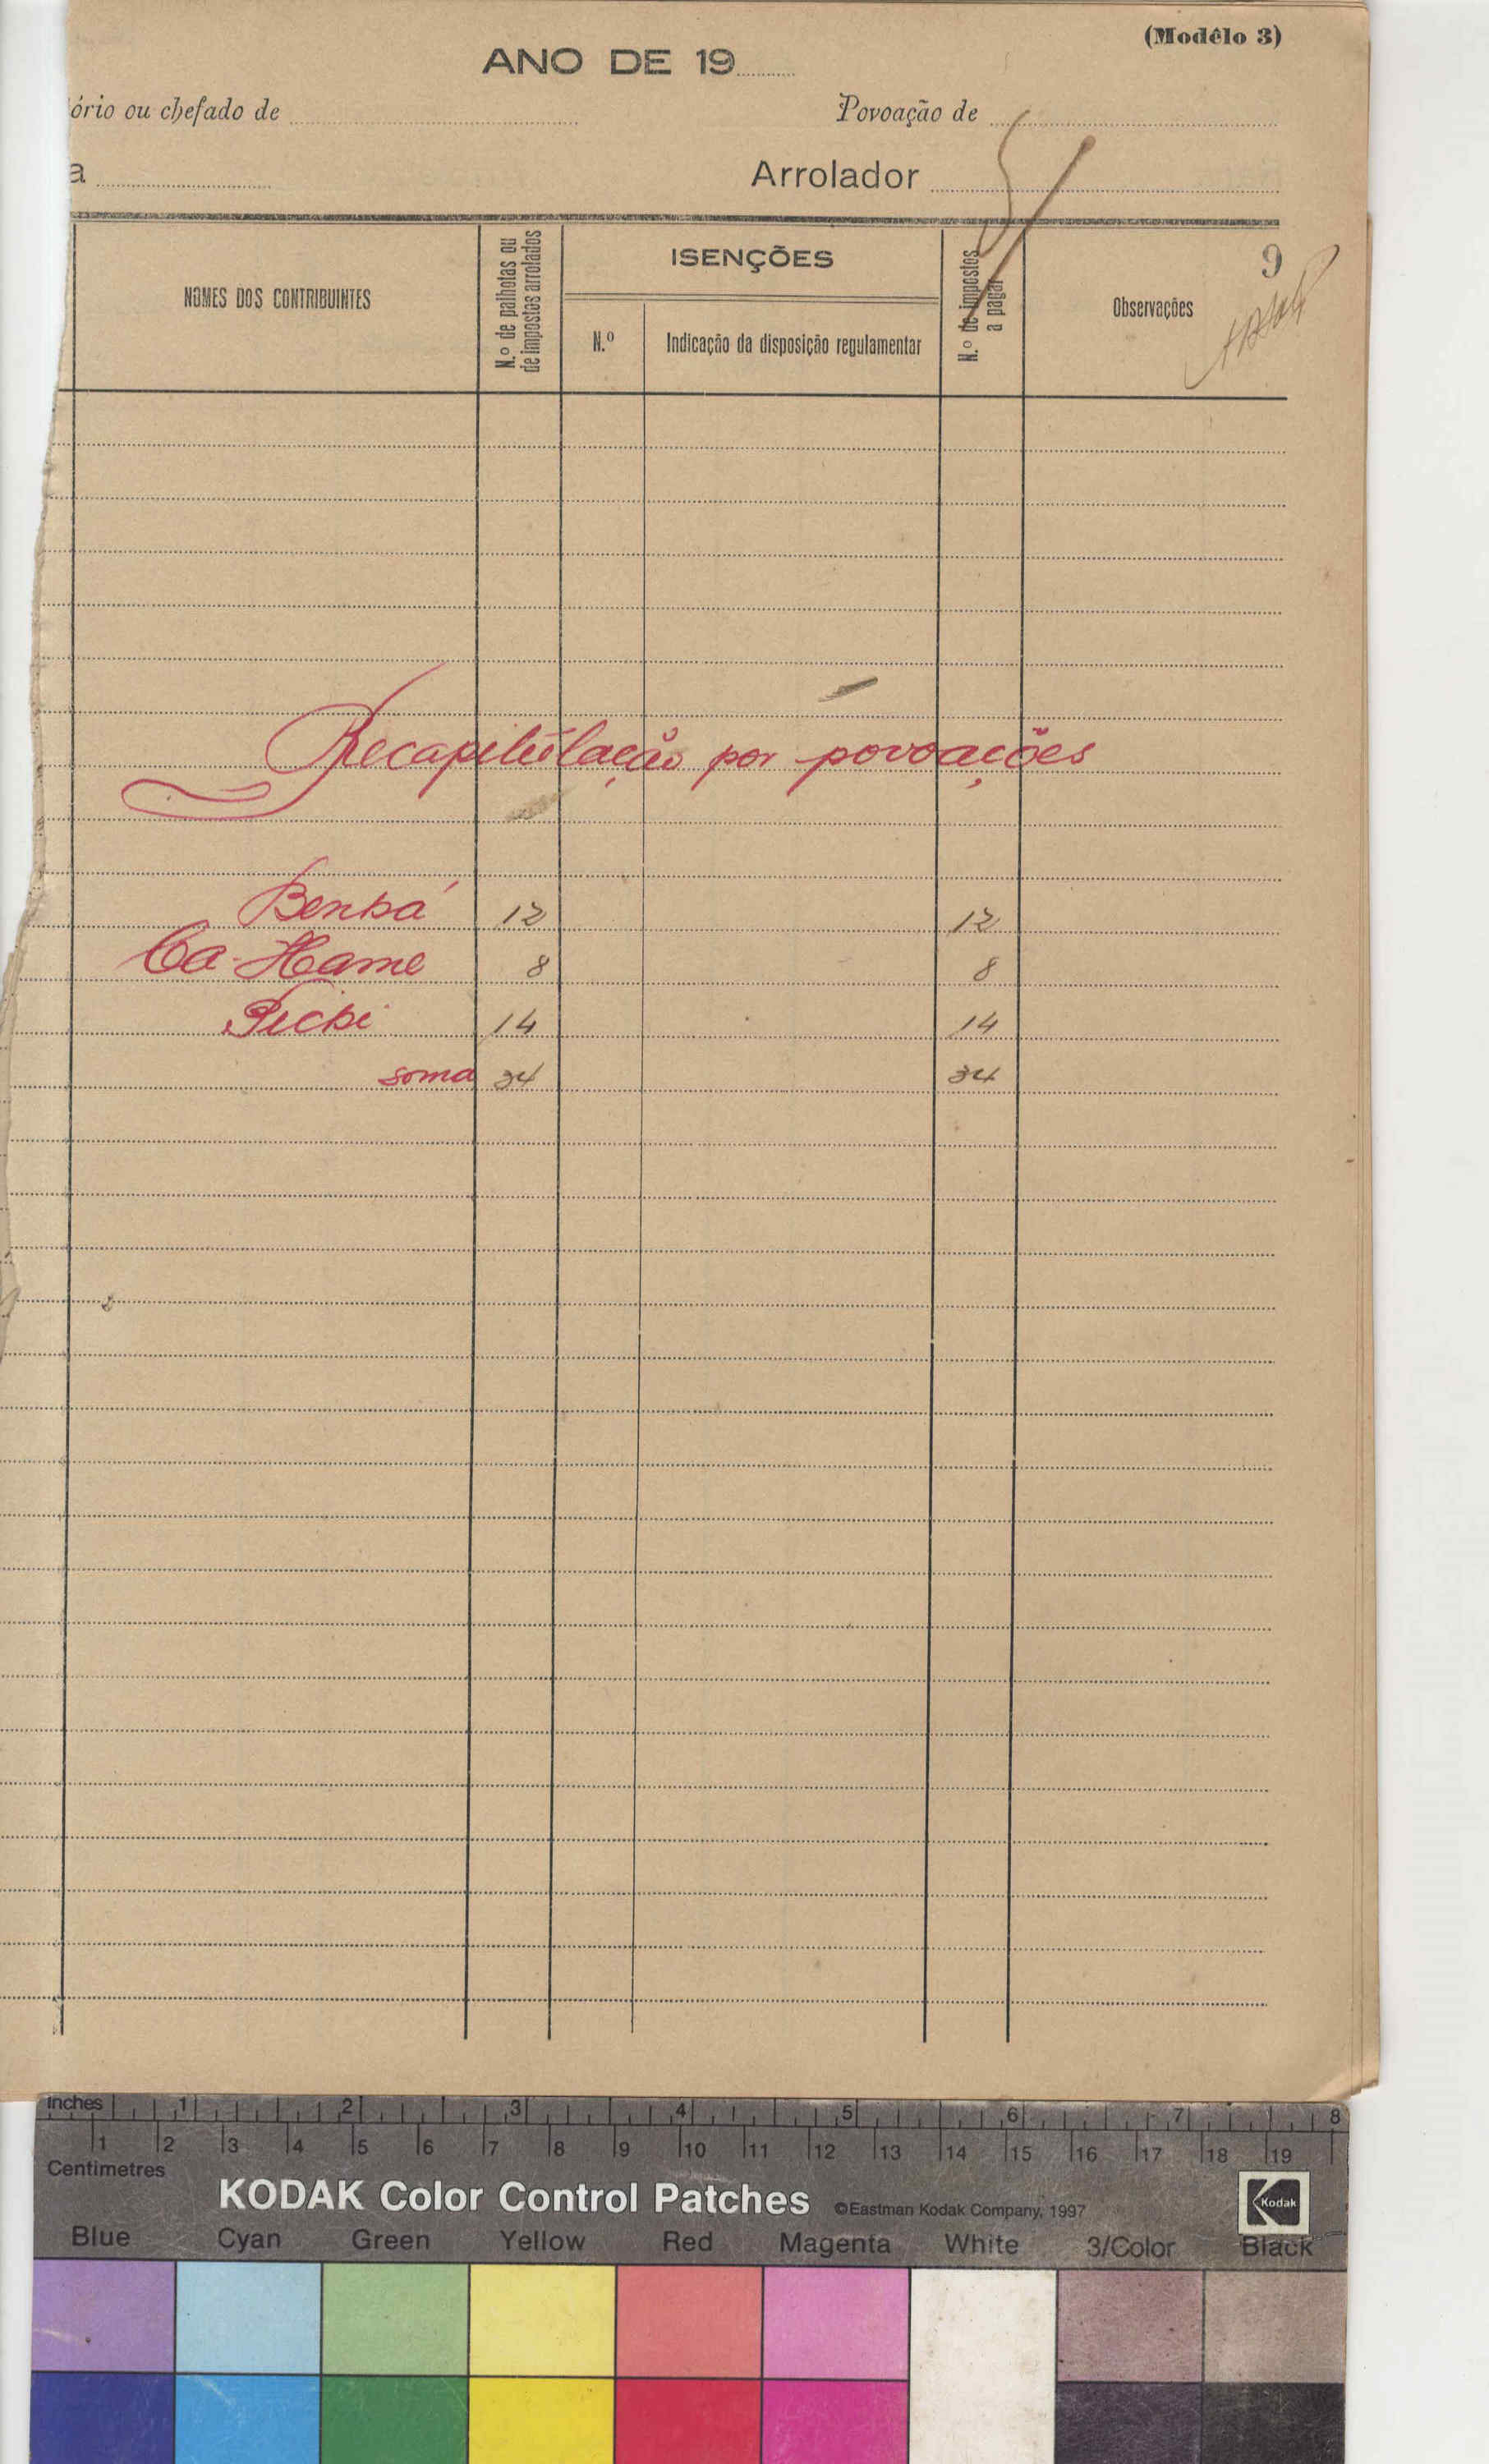 (Modêlo 3)
ANO DE 19
ório ou chefado de
Povoação de
a
Arrolador
NOMES DOS CONTRIBUINTES
N.º de palhotas ou
de impostos arrolados
ISENÇÕES
N.º
Indicação da disposição regulamentar
N.º de impostos
a pagar
Observações
9
Recapitulação por povoações
Benbá 12 12
Ca-Hame 8 8
14 14
soma 34 34
inches 1 2 3 4 5 6 7 8
1 2 3 4 5 6 7 8 9 10 11 12 13 14 15 16 17 18 19
Centimetres
KODAK Color Control Patches ©Eastman Kodak Company, 1997 Kodak
Blue Cyan Green Yellow Red Magenta White 3/Color Black